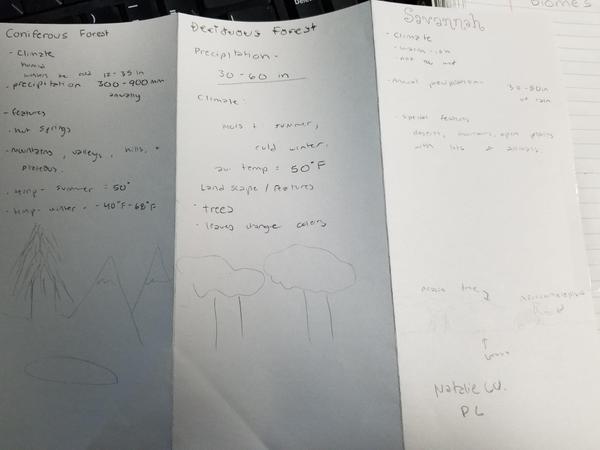 Biomes
Coniferous Forest
- Climate
humid
winters are cold 12-35 in
- precipitation 300-900 mm
annually
- features
- hot springs
- mountains, valleys, hills, +
plateaus.
- temp - summer = 50°
- temp - winter = -40°F-68°F
Deciduous Forest
Precipitation -
30-60 in
Climate:
summer,
cold winter.
av. temp = 50°F
Landscape / features
- trees
- leaves change colors
Savannah
- climate
- warm
- not hot
- Annual precipitation - 30-50in
of rain
- special features
deserts, mountains, open plains
with lots of animals.
acacia tree
Natalie W.